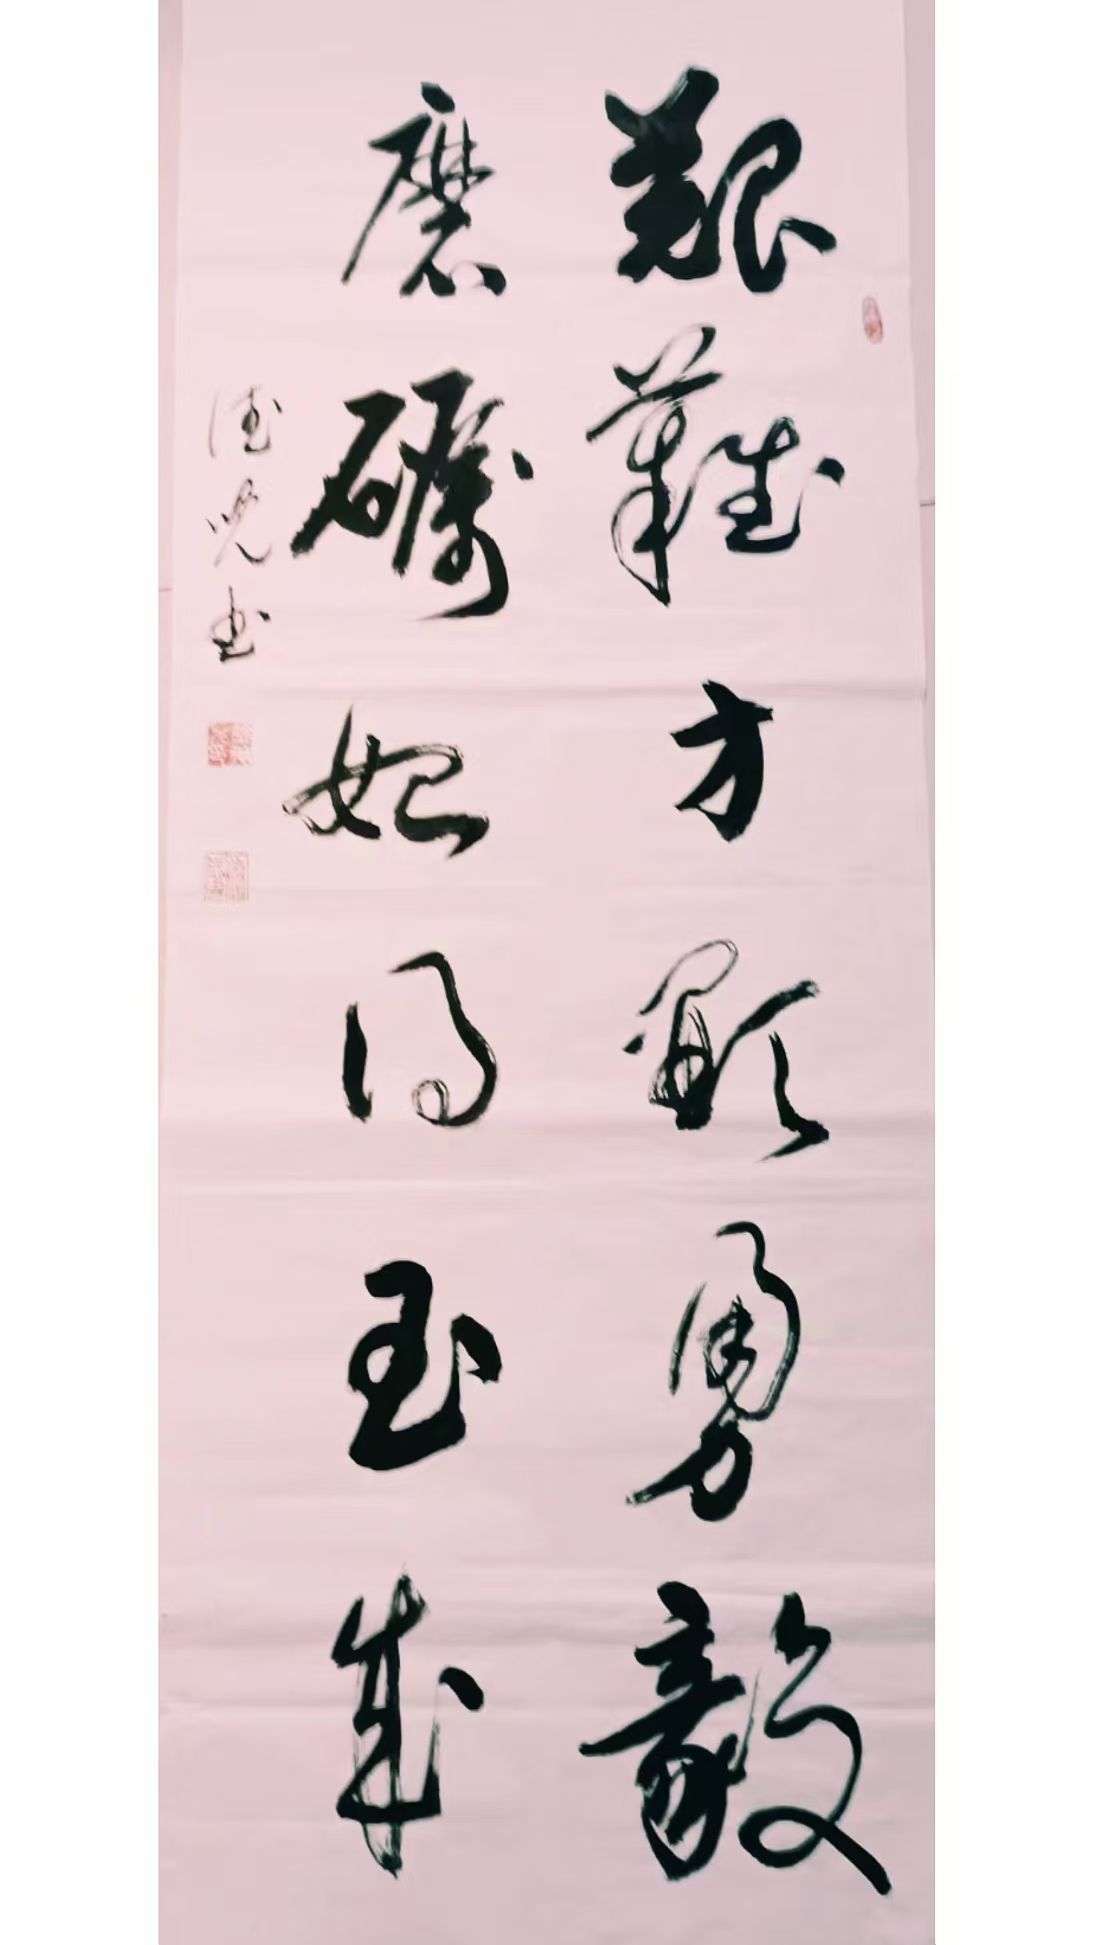 艱難方顯勇毅
磨礪始得玉成
德光書